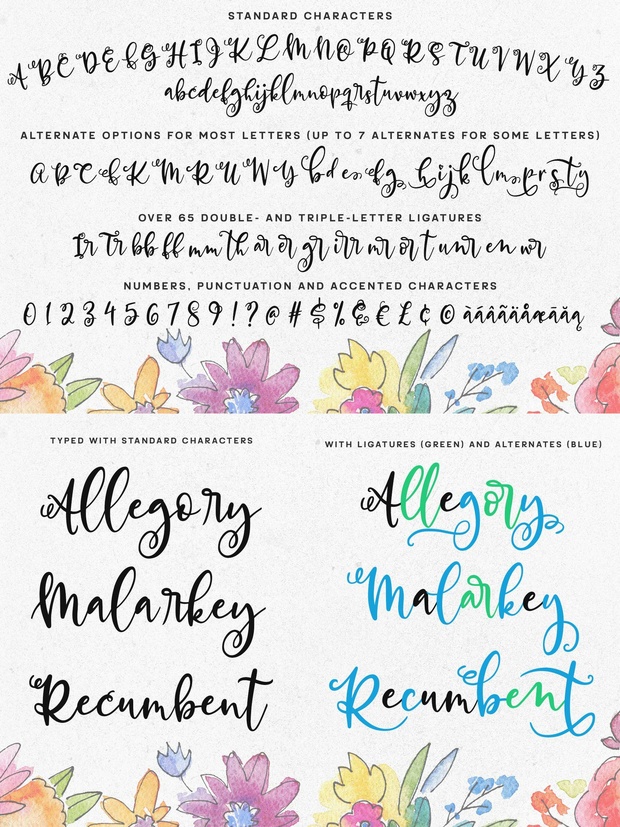 STANDARD CHARACTERS
A B C D E F G H I J K L M N O P Q R S T U V W X Y Z
abcdefghijklmnopqrstuvwxyz
ALTERNATE OPTIONS FOR MOST LETTERS (UP TO 7 ALTERNATES FOR SOME LETTERS)
OVER 65 DOUBLE- AND TRIPLE-LETTER LIGATURES
Ir Tr bb ff mm Th ar er gr irr mr or t unr en wr
NUMBERS, PUNCTUATION AND ACCENTED CHARACTERS
0 1 2 3 4 5 6 7 8 9 ! ? @ # $ % & € £ ¢ © àáâãäåæāăą
TYPED WITH STANDARD CHARACTERS
WITH LIGATURES (GREEN) AND ALTERNATES (BLUE)
Allegory
Allegory
Malarkey
Malarkey
Recumbent
Recumbent